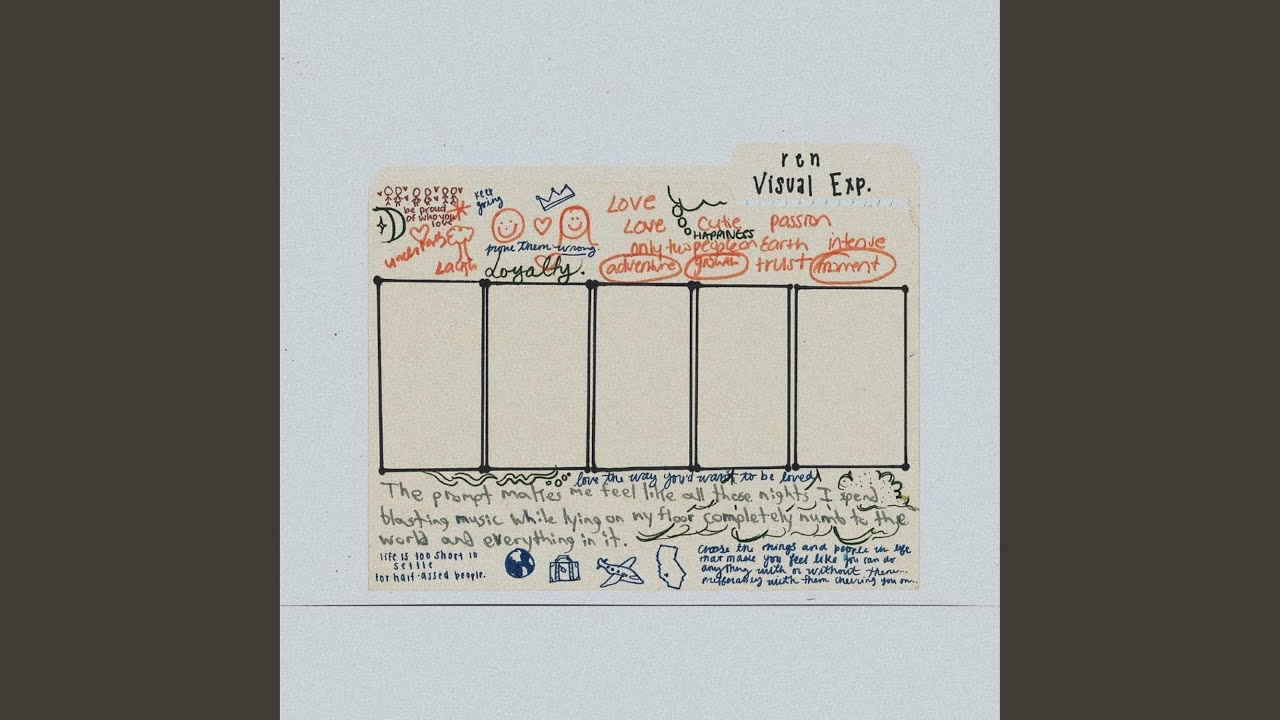 ren
Visual Exp.
keep
going
be proud
of who you
love
LOVE
LOVE
cutie
passion
HAPPINESS
prove them wrong.
only two people on Earth
intense
Laugh
Loyalty.
adventure
growth
trust
moment
love the way you'd want to be loved
The prompt makes me feel like all those nights I spend
blasting music while lying on my floor completely numb to the
world and everything in it.
life is too short to
settle
for half-assed people.
choose the things and people in life
that make you feel like you can do
anything with or without them...
preferably with them cheering you on...